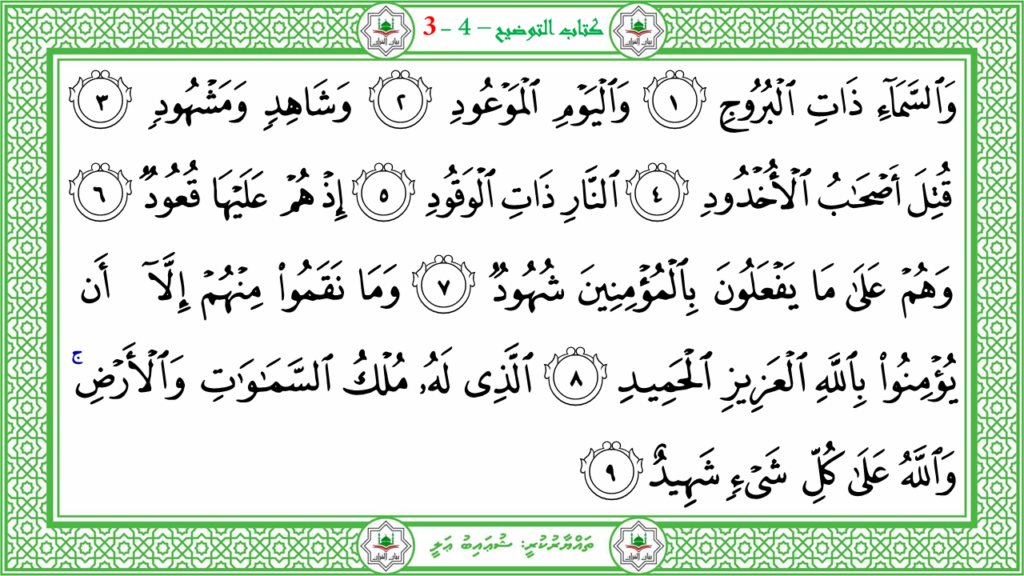 كتاب التوضيح – 4 - 3
وَٱلسَّمَآءِ ذَاتِ ٱلۡبُرُوجِ ١ وَٱلۡيَوۡمِ ٱلۡمَوۡعُودِ ٢ وَشَاهِدٖ وَمَشۡهُودٖ ٣
قُتِلَ أَصۡحَٰبُ ٱلۡأُخۡدُودِ ٤ ٱلنَّارِ ذَاتِ ٱلۡوَقُودِ ٥ إِذۡ هُمۡ عَلَيۡهَا قُعُودٞ ٦
وَهُمۡ عَلَىٰ مَا يَفۡعَلُونَ بِٱلۡمُؤۡمِنِينَ شُهُودٞ ٧ وَمَا نَقَمُواْ مِنۡهُمۡ إِلَّآ أَن
يُؤۡمِنُواْ بِٱللَّهِ ٱلۡعَزِيزِ ٱلۡحَمِيدِ ٨ ٱلَّذِي لَهُۥ مُلۡكُ ٱلسَّمَٰوَٰتِ وَٱلۡأَرۡضِۚ
وَٱللَّهُ عَلَىٰ كُلِّ شَيۡءٖ شَهِيدٌ ٩
ތައްޔާރުކުރީ: ޝުޢައިބު ޢަލީ